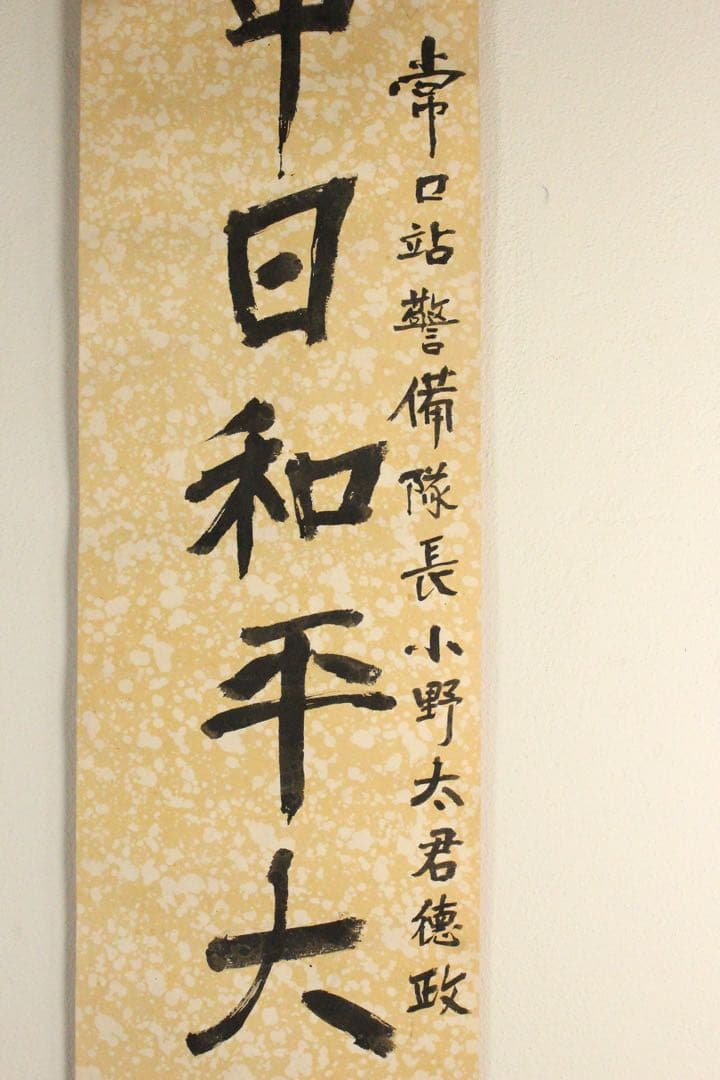 常口站警備隊長小野太君德政
日和平大